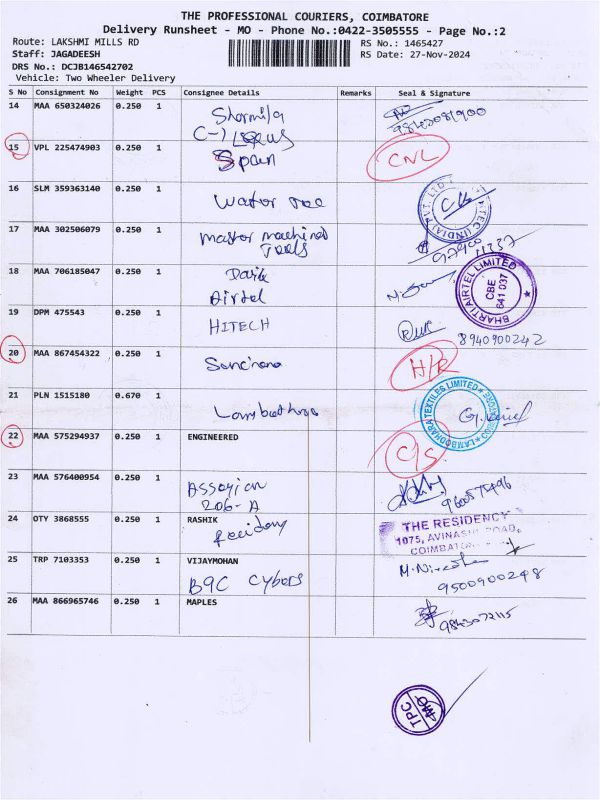 THE PROFESSIONAL COURIERS, COIMBATORE
Delivery Runsheet - MO - Phone No.:0422-3505555 - Page No.:2
Route: LAKSHMI MILLS RD
RS No.: 1465427
Staff: JAGADEESH
RS Date: 27-Nov-2024
DRS No.: DCJB146542702
Vehicle: Two Wheeler Delivery
S No Consignment No Weight PCS Consignee Details Remarks Seal & Signature
14 MAA 650324026 0.250 1 Sharmila
15 VPL 225474903 0.250 1 Spain CNL
16 SLM 359363140 0.250 1 Water Tec
17 MAA 302506079 0.250 1 Master machined
Tools
18 MAA 706185047 0.250 1
Airtel
BHARTI AIRTEL LIMITED
CBE
641 037
19 DPM 475543 0.250 1 HITECH
8940900242
20 MAA 867454322 0.250 1 H/R
21 PLN 1515180 0.670 1
LAMBODHARA TEXTILES LIMITED
COIMBATORE
22 MAA 575294937 0.250 1 ENGINEERED C/S
23 MAA 576400954 0.250 1
206-A
24 OTY 3868555 0.250 1 RASHIK
THE RESIDENCY
1075, AVINASHI ROAD,
COIMBATORE
25 TRP 7103353 0.250 1 VIJAYMOHAN
9500900248
26 MAA 866965746 0.250 1 MAPLES
9843072115
TPC